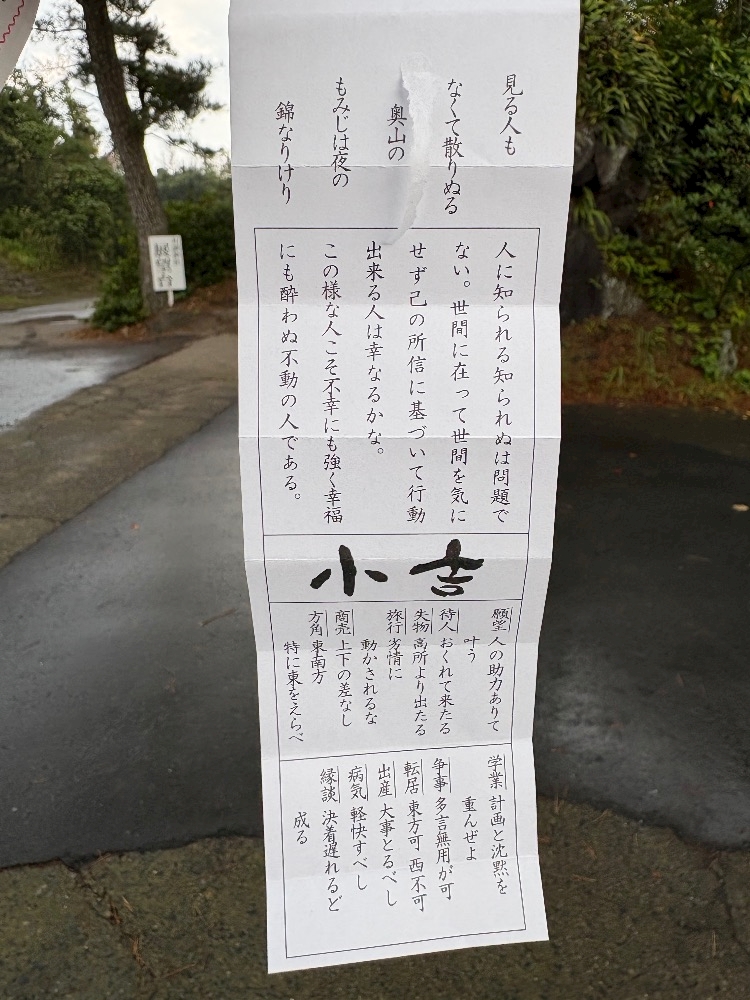 見る人も
なくて散りぬる
奥山の
もみじは夜の
錦なりけり
人に知られる知られぬは問題で
ない。世間に在って世間を気に
せず己の所信に基づいて行動
出来る人は幸なるかな。
この様な人こそ不幸にも強く幸福
にも酔わぬ不動の人である。
小吉
願望 人の助力ありて
叶う
待人 おくれて来たる
失物 高所より出たる
旅行 劣情に
動かされるな
商売 上下の差なし
方角 東南方
特に東をえらべ
学業 計画と沈黙を
重んぜよ
争事 多言無用が可
転居 東方可 西不可
出産 大事とるべし
病気 軽快すべし
縁談 決着遅れるど
成る
展望台